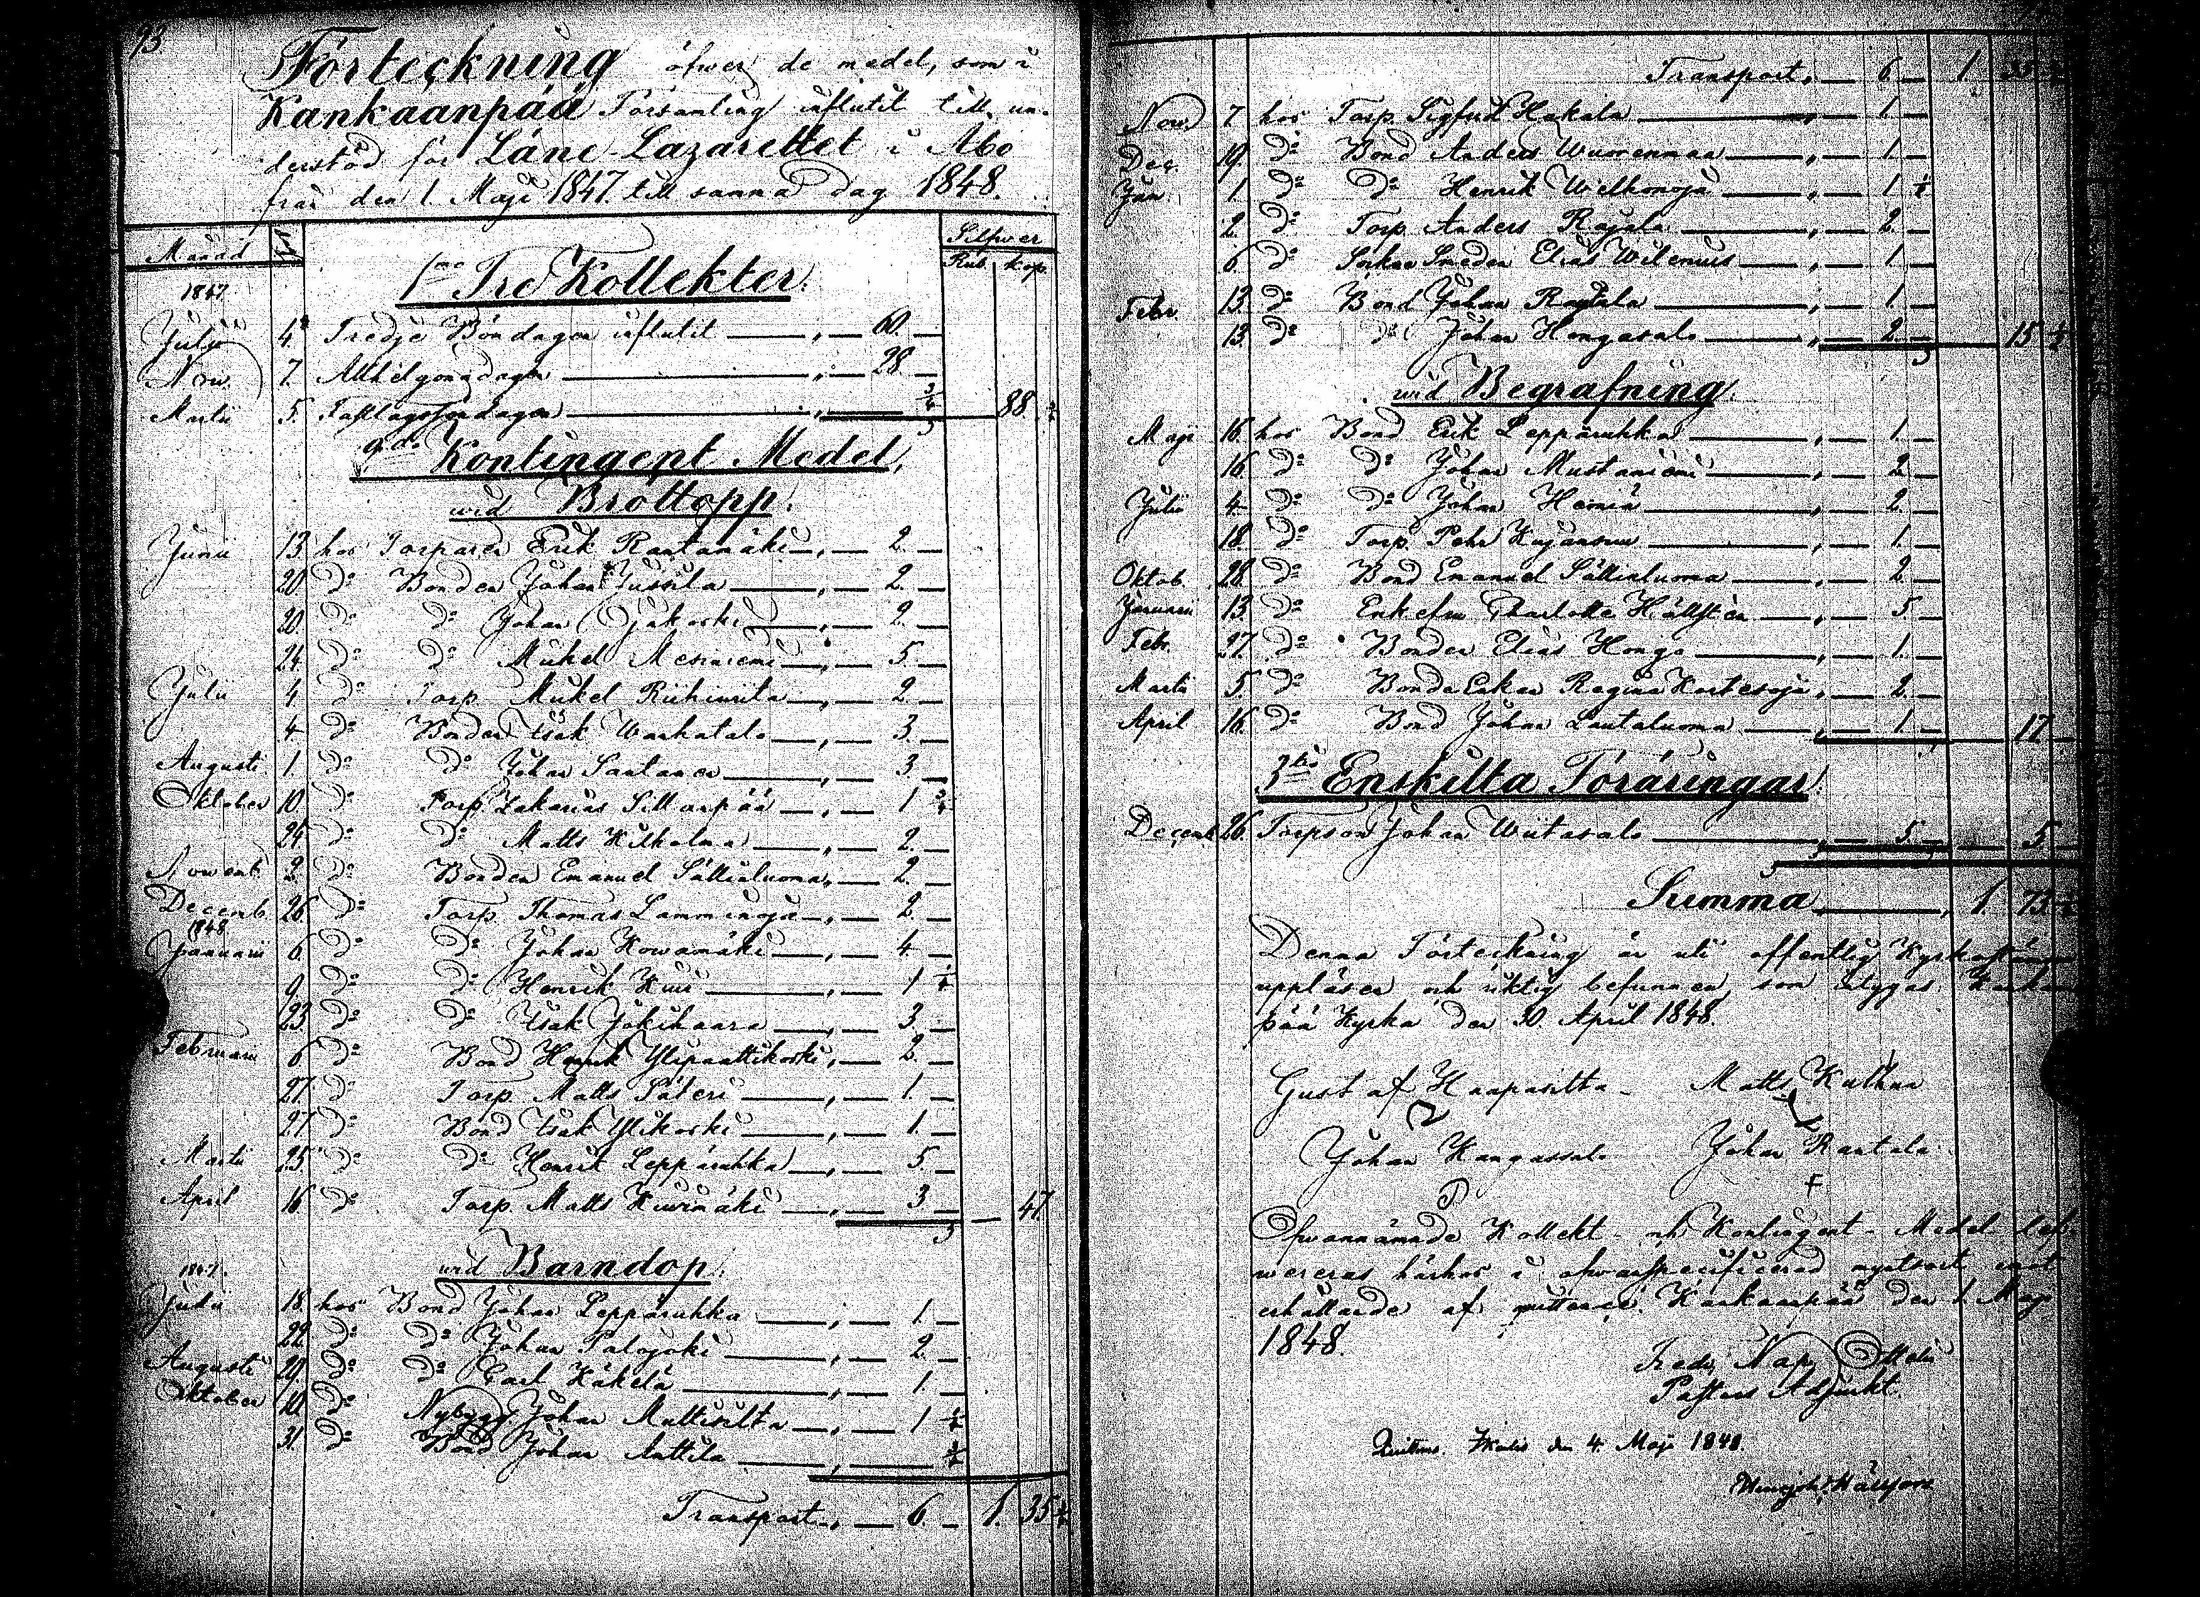 93
Förteckning öfwer de medel, som i
Kankaanpää Församling influtit till un-
derstöd för Läns-Lazarettet i Åbo
från den 1. Maji 1847. till samma dag 1848.
Månad Silfwer
Rub. kop.
1mo Tre Kollekter.
1847
Julii 4. Tredje Böndagen influtit 60.
Nov. 7. Allhelgonadagen 28.
Martii 5. Fastlagssöndagen 3/4 88 3/4
2do Kontingent Medel,
wid Bröllopp.
Junii 13. hos Torparen Erik Rantamäki 2.
20. Do Bonden Johan Jussila 2.
20. Do Do Johan 2.
24. Do Do Mickel Mesiniemi 5.
Julii 4. Do Torp. Mickel Riihiwiita 2.
4. Do Bonden Isak Warhatalo 3.
Augusti 1. Do Do Johan Santanen 3.
Oktober 10. Do Torp. Zakarias Sillanpää 1
24. Do Do Matts Kilholma 2.
Novemb. 2. Do Bonden Emanuel Sällinluoma 2.
Decemb. 26. Do Torp. Thomas Lamminoja 2.
1848
Januarii 6. Do Do Johan Kowamäki 4.
9. Do Do Henrik Kuu 1
23. Do Do Isak Jokihaara 3.
Februarii 6. Do Bond Henrik Ylipaattikoski 2.
27. Do Torp. Matts Säteri 1.
27. Do Bond Isak Ylikoski 1.
Martii 25. Do Do Henrik Leppäruhka 5.
April 16. Do Torp. Matts Kiwimäki 3. 47.
wid Barndop.
1847.
Julii 18. hos Bond Johan Leppäruhka 1.
22. Do Do Johan Palojoki 2.
Augusti 29. Do Do Carl Käkelä 1.
Oktober 10. Do Nybygg. Johan Mattisilta 1
31. Do Bond Johan Anttila
Transport 6. 1. 35
Transport 6 1. 35
Nov. 7. hos Torp. Sigfrid Hakala 1.
Dec. 19. Do Bond Anders Wuorenmaa 1.
Jan. 1. Do Do Henrik Wielhonoja 1 1/2
2. Do Torp. Anders Rajala 2.
6. Do Socken Smeden Elias Wilenius 1.
Febr. 13. Do Bond Johan Rajtala 1.
13. Do Do Johan Hongasalo 2. 15 1/2
wid Begrafning.
Maji 16. hos Bond Erik Leppäruhka 1.
16. Do Do Johan Mustaniemi 2.
Julii 4. Do Do Johan Heiniä 2.
18. Do Torp. Pehr Kajansuu 1.
Oktob. 28. Do Bond Emanuel Sällinluoma 2.
Januarii 13. Do Enkefru Charlotte Hällstén 5.
Febr. 27. Do Bonden Elias Hongo 1.
Martii 5. Do Bonde Enkan Regina Kortesoja 2.
April 16. Do Bond Johan Lautaluoma 1. 17
3tio Enskilta Föräringar.
Decemb. 26. Torpson Johan Wiitasalo 5. 5
Summa 1. 73
Denna Förteckning är uti offentlig Kyrkostämma
uppläsen och riktig befunnen, som intygas Kankan-
pää Kyrka den 30. April 1848.
Gustaf Haapasilta Matts Kuthaa
Johan Kangassalo Johan Rantala
Ofwannämnde Kollekt- och Kontingent-Medel lef-
wereras härhos i ofwanspecificerad myntsort emot
erhållande af quittence. Kankaanpää den 1. Maji
1848.
Fredr. Nap. Ottelin
Pastors Adjunkt.
Quitteras. Ikalis den 4. Maji 1848.